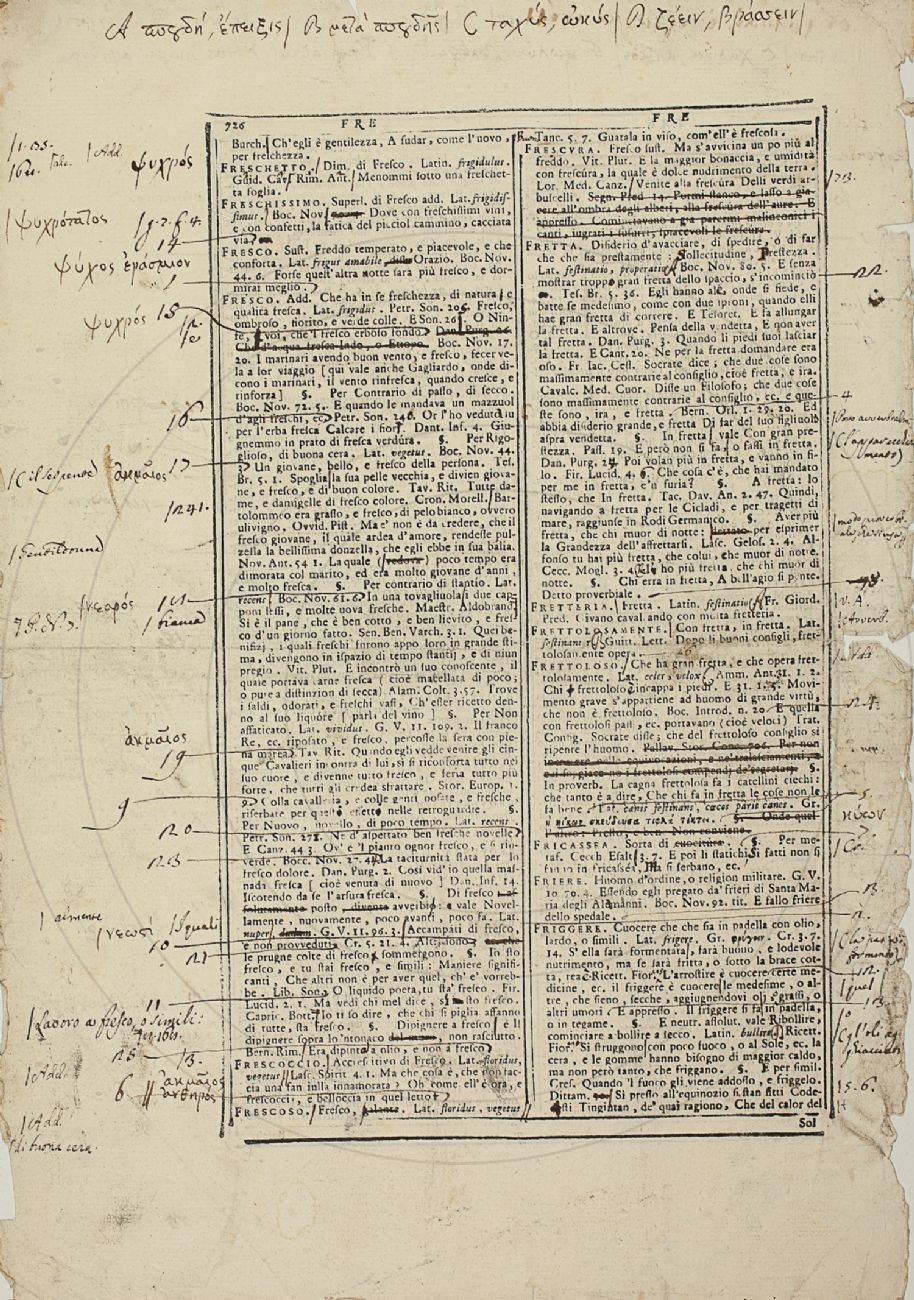 A σπουδή, ἔπειξις/ B μετὰ σπουδῆς/ C ταχύς, ὠκύς/ D ζέειν, βράσσειν/
726 FRE
FRE
Burch. Ch'egli è gentilezza, A sudar, come l'uovo,
per freschezza.
FRESCHETTO. Dim. di Fresco. Latin. frigidulus.
Guid. Cav. Rim. Ant. Menommi sotto una freschet-
ta foglia.
FRESCHISSIMO. Superl. di Fresco add. Lat. frigidis-
simus. Boc. Nov. Dove con freschissimi vini,
e con confetti, la fatica del picciol cammino, cacciata
via.
FRESCO. Sust. Freddo temperato, e piacevole, e che
conforta. Lat. frigus amabile disse Orazio. Boc. Nov.
44. 6. Forse quest'altra notte sarà più fresco, e dor-
mirai meglio.
FRESCO. Add. Che ha in se freschezza, di natura, e
qualità fresca. Lat. frigidus. Petr. Son. 205. Fresco,
ombroso, fiorito, e verde colle. E Son. 26. O Nin-
fe, e voi, che 'l fresco erboso fondo. Dan. Purg. 26.
Boc. Nov. 17.
20. I marinari avendo buon vento, e fresco, fecer ve-
la a lor viaggio [qui vale anche Gagliardo, onde di-
cono i marinari, il vento rinfresca, quando cresce, e
rinforza] §. Per Contrario di passo, di secco.
Boc. Nov. 72. 5. E quando le mandava un mazzuol
d'agli freschi, ec. Petr. Son. 246. Or l'ho veduto su
per l'erba fresca Calcare i fior. Dant. Inf. 4. Giu-
gnemmo in prato di fresca verdura. §. Per Rigo-
glioso, di buona cera. Lat. vegetus. Boc. Nov. 44.
3. Un giovane, bello, e fresco della persona. Tes.
Br. 5. 1. Spoglia la sua pelle vecchia, e divien giova-
ne, e fresco, e di buon colore. Tav. Rit. Tutte da-
me, e damigelle di fresco colore. Cron. Morell. Bar-
tolommeo era grasso, e fresco, di pelo bianco, ovvero
ulivigno. Ovvid. Pist. Ma e' non è da credere, che il
fresco giovane, il quale ardea d'amore, rendesse pul-
zella la bellissima donzella, che egli ebbe in sua balia.
Nov. Ant. 54 1. La quale (vedova) poco tempo era
dimorata col marito, ed era molto giovane d'anni,
e molto fresca. §. Per contrario di stantio. Lat.
recens. Boc. Nov. 61. 6. In una tovagliuola due cap-
poni lessi, e molte uova fresche. Maestr. Aldobrand.
Si è il pane, che è ben cotto, e ben lievito, e fres-
co d'un giorno fatto. Sen. Ben. Varch. 3. 1. Quei be-
nifizj, i quali freschi furono appo loro in grande sti-
ma, divengono in ispazio di tempo stantij, e di niun
pregio. Vit. Plut. E incontrò un suo conoscente, il
quale portava carne fresca (cioè macellata di poco;
o pure a distinzion di secca) Alam. Colt. 3. 57. Trove
i saldi, odorati, e freschi vasi, Ch'esser ricetto den-
no al suo liquore [parla del vino] §. Per Non
affaticato. Lat. vividus. G. V. 11. 109. 2. Il franco
Re, ec. riposato, e fresco, percosse la sera con pie-
na marea. Tav. Rit. Quando egli vedde venire gli cin-
que Cavalieri incontra di lui, sì si riconforta tutto nel
suo cuore, e divenne tutto fresco, e feria tutto più
forte, che tutti gli credea sfrattare. Stor. Europ. 1.
9. Colla cavalleria, e colle genti posate, e fresche,
riserbate per questo effetto nelle retroguardie. §.
Per Nuovo, novello, di poco tempo. Lat. recens.
Petr. Son. 271. Ne d'aspettato ben fresche novelle.
E Canz. 44 3. Ov' è 'l pianto ognor fresco, e si rin-
verde. Bocc. Nov. 27. 4. La taciturnità stata per lo
fresco dolore. Dan. Purg. 2. Così vid' io quella mas-
nada fresca [cioè venuta di nuovo] Dan. Inf. 14.
Iscotendo da se l'arsura fresca. §. Di fresco
posto avverbio: vale Novel-
lamente, nuovamente, poco avanti, poco fa. Lat.
nuper. G. V. 11. 96. 3. Accampati di fresco,
e non provveduti. Cr. 5. 21. 4.
le prugne colte di fresco sommergono. §. Io sto
fresco, e tu stai fresco, e simili: Maniere signifi-
canti, Che altri non è per aver quel, ch'e' vorreb-
be. Lib. Son. O liquido poeta, tu sta' fresco. Fir.
Lucid. 2. 1. Ma vedi chi mel dice, sto fresco.
Capric. Bott. Io ti so dire, che chi si piglia affanno
di tutte, sta fresco. §. Dipignere a fresco, è Il
dipignere sopra lo 'ntonaco, non rasciutto.
Bern. Rim. Era dipinto a olio, e non a fresco.
FRESCOCCIO. Accrescitivo di Fresco. Lat. floridus,
vegetus. Lasc. Sibill. 4. 1. Ma che cosa è, che non fac-
cia una fanciulla innamorata? Oh come ell'è ora, e
frescoccia, e belloccia in quel letto!
FRESCOSO. Fresco, Lat. floridus, vegetus
Buon. Tanc. 5. 7. Guatala in viso, com'ell'è frescosa.
FRESCURA. Fresco sust. Ma s'avvicina un po più al
freddo. Vit. Plut. E la maggior bonaccia, e umidità
con frescura, la quale è dolce nudrimento della terra.
Lor. Med. Canz. Venite alla frescura Delli verdi ar-
buscelli. Segn. Pred. 14. Pormi stanco, e lasso a gia-
cere all'ombra degli alberi, alla frescura dell'aure. E
appresso. Cominciavano a già parermi malinconici i
canti, ingrati i susurri, spiacevoli le frescure.
FRETTA. Disiderio d'avacciare, di spedire, o di far
che che sia prestamente: Sollecitudine, Prestezza.
Lat. festinatio, properatio. Boc. Nov. 80. 5. E senza
mostrar troppo gran fretta dello spaccio, s'incominciò
Tes. Br. 5. 36. Egli hanno ale, onde si fiede, e
batte se medesimo, come con due sproni, quando elli
hae gran fretta di correre. E Tesoret. E fa allungar
la fretta. E altrove. Pensa della vendetta, E non aver
tal fretta. Dan. Purg. 3. Quando li piedi suoi lasciar
la fretta. E Cant. 20. Ne per la fretta domandare era
oso. Fr. Iac. Cess. Socrate dice; che due cose sono
massimamente contrarie al consiglio, cioè fretta, e ira.
Cavalc. Med. Cuor. Disse un Filosofo; che due cose
sono massimamente contrarie al consiglio, ec. e que-
ste sono, ira, e fretta. Bern. Orl. 1. 29. 20. Ed
abbia disiderio grande, e fretta Di far del suo figliuolo
aspra vendetta. §. In fretta, vale Con gran pre-
stezza. Pass. 19. E però non si fa, o fassi in fretta.
Dan. Purg. 24. Poi volan più in fretta, e vanno in fi-
lo. Fir. Lucid. 4. 6. Che cosa c'è, che hai mandato
per me in fretta, e 'n furia? §. A fretta: lo
stesso, che In fretta. Tac. Dav. An. 2. 47. Quindi,
navigando a fretta per le Cicladi, e per tragetti di
mare, raggiunse in Rodi Germanico. §. Aver più
fretta, che chi muor di notte: per esprimer
la Grandezza dell'affrettarsi. Lasc. Gelos. 2. 4. Al-
fonso tu hai più fretta, che colui, che muor di notte.
Cecc. Mogl. 3. 4. Io ho più fretta, che chi muor di
notte. §. Chi erra in fretta, A bell'agio si pente.
Detto proverbiale.
FRETTERIA. Fretta. Latin. festinatio. Fr. Giord.
Pred. Givano cavalcando con molta fretteria.
FRETTOLOSAMENTE. Con fretta, in fretta. Lat.
festinanter. Guitt. Lett. Dopo li buoni consigli, fret-
tolosamente opera.
FRETTOLOSO. Che ha gran fretta, e che opera fret-
tolosamente. Lat. celer, velox. Amm. Ant. 31. 1. 2.
Chi è frettoloso, incappa i piedi. E 31. 1. 5. Movi-
mento grave s'appartiene ad huomo di grande virtù,
che non è frettoloso. Boc. Introd. n. 20. E quella
con frettolosi passi, ec. portavano (cioè veloci) Trat.
Consig. Socrate disse; che del frettoloso consiglio si
ripente l'huomo. Pallav. Stor. Conc. 706. Per non
§.
In proverb. La cagna frettolosa fa i catellini ciechi:
che tanto è a dire, Che chi fa in fretta le cose non le
fa bene. Lat. canis festinans, caecos parit canes. Gr.
§. Onde quel
l'altro: Presto, e ben Non conviene.
FRICASSEA. Sorta di §. Per me-
taf. Cecch Esalt. 3. 7. E poi li statichi Si fatti non si
fanno in fricassea, Ma si serbano, ec.
FRIERE. Huomo d'ordine, o religion militare. G. V.
10. 70. 4. Essendo egli pregato da' frieri di Santa Ma-
ria degli Alamanni. Boc. Nov. 92. tit. E fallo friere
dello spedale.
FRIGGERE. Cuocere che che sia in padella con olio,
lardo, o simili. Lat. frigere. Gr. φρύγειν. Cr. 3. 7.
14. S'ella sarà formentata, sarà buono, e lodevole
nutrimento, ma se sarà fritta, o sotto la brace cot-
ta, rea. Ricett. Fior. L'arrostire è cuocere certe me-
dicine, ec. il friggere è cuocere le medesime, o al-
tre, che sieno, secche, aggiugnendovi olj, e grassi, o
altri umori. E appresso. Il friggere si fa in padella,
o in tegame. §. E neutr. assolut. vale Ribollire,
cominciare a bollire a secco. Latin. bullire. Ricett.
Fior. Si struggono con poco fuoco, o al Sole, ec. la
cera, e le gomme hanno bisogno di maggior caldo,
ma non però tanto, che friggano. §. E per simil.
Cres. Quando 'l fuoco gli viene addosso, e friggelo.
Dittam. Si presso all'equinozio si stan fitti Code-
sti Tingintan, de' quai ragiono, Che del calor del
Sol
ψυχρός
ψυχρότατος
14
ψύχος ἐράσμιον
1
ψυχρός 15
16
ἀκμαῖος 17
1241.
νεαρός
/ bianca
ἀκμαῖος
19
9
20
23
νεωστί
10
21
11
Lavoro a fresco, o simili.
25
13.
6 ἀκμαῖος
ἀνθηρός
/Add.
di buona cera.
22.
4
24.
5
13
12.